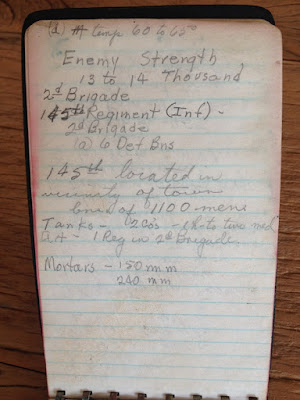 (d) # temp 60 to 65°
Enemy Strength
13 to 14 Thousand
2d Brigade
145th Regiment (Inf) -
2d Brigade
(a) 6 Det Bns
145th located in
vicinity of town
lines of 1100 men
Tanks - 200's - photo two med
AA - 1 Reg in 2d Brigade.
Mortars - 150 mm
240 mm